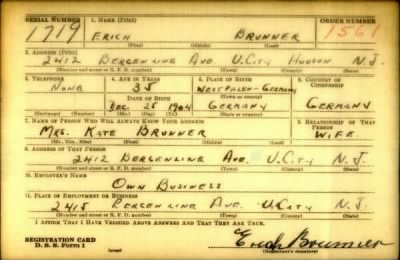 SERIAL NUMBER 1. NAME (Print) ORDER NUMBER
1719 ERICH BRUNNER 1561
(First) (Middle) (Last)
2. ADDRESS (Print)
2412 BERGENLINE AVE U.CITY HUDSON N.J.
(Number and street or R. F. D. number) (Town) (County) (State)
3. TELEPHONE 4. AGE IN YEARS 5. PLACE OF BIRTH 6. COUNTRY OF CITIZENSHIP
NONE 35 WESTPHALEN-GERMANY
DATE OF BIRTH
DEC 28 1904 GERMANY GERMANY
(Exchange) (Number) (Mo.) (Day) (Yr.) (Town or county) (State or country)
7. NAME OF PERSON WHO WILL ALWAYS KNOW YOUR ADDRESS 8. RELATIONSHIP OF THAT PERSON
MRS. KATE BRUNNER WIFE
(Mr., Mrs., Miss) (First) (Middle) (Last)
9. ADDRESS OF THAT PERSON
2412 BERGENLINE AVE. U.CITY N.J.
(Number and street or R. F. D. number) (Town) (County) (State)
10. EMPLOYER'S NAME
OWN BUSINESS
11. PLACE OF EMPLOYMENT OR BUSINESS
2415 BERGENLINE AVE. U.CITY N.J.
(Number and street or R. F. D. number) (Town) (County) (State)
I AFFIRM THAT I HAVE VERIFIED ABOVE ANSWERS AND THAT THEY ARE TRUE.
REGISTRATION CARD
D. S. S. Form 1
Erich Brunner
(Registrant's signature)